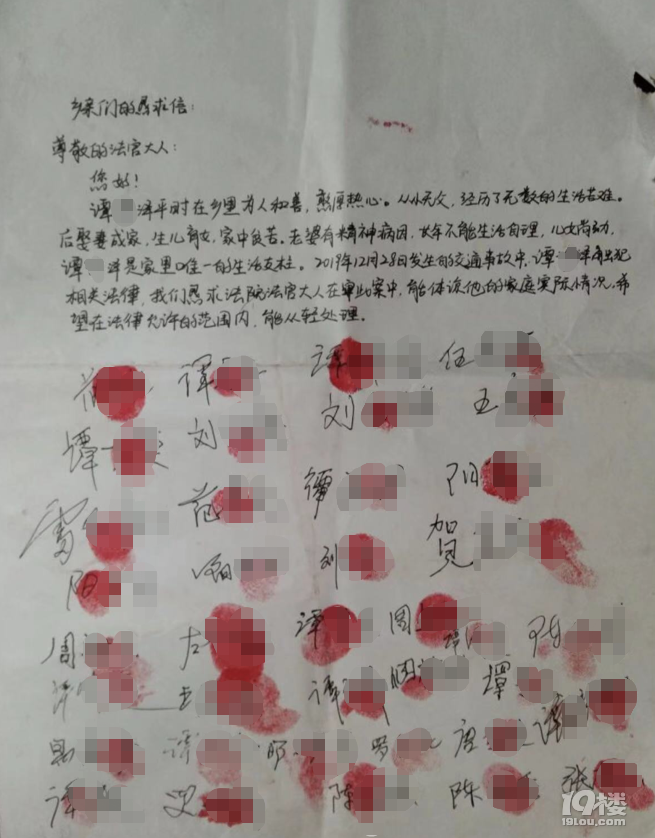 乡亲们的恳求信:
尊敬的法官大人:
您好!
谭 泽平时在乡里为人和善,憨厚热心。从小无父,经历了无数的生活苦难。
后娶妻成家,生儿育女,家中贫苦。老婆有精神病因,长年不能生活自理,儿女尚幼,
谭 泽是家里唯一的生活支柱。2019年12月28日发生的交通事故中,谭 泽触犯
相关法律,我们恳求法院法官大人在审此案中,能体谅他的家庭实际情况。希
望在法律允许的范围内,能从轻处理。
谭 谭 伍
谭 刘 刘 王
雷 范 谭 阳
阳 刘 贺
周 左 谭 周
王 谭 谭
谭 罗 唐 谭
谭 陈 陈 张
19楼
19lou.com